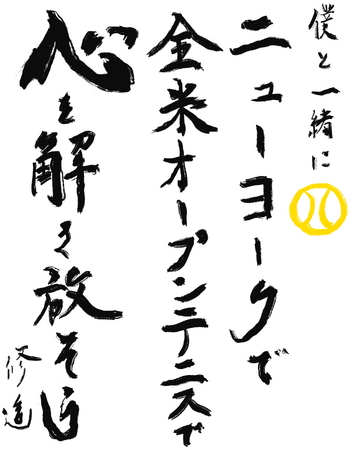 僕と一緒に
ニューヨークで
全米オープンテニスで
心を解き放そう
修造